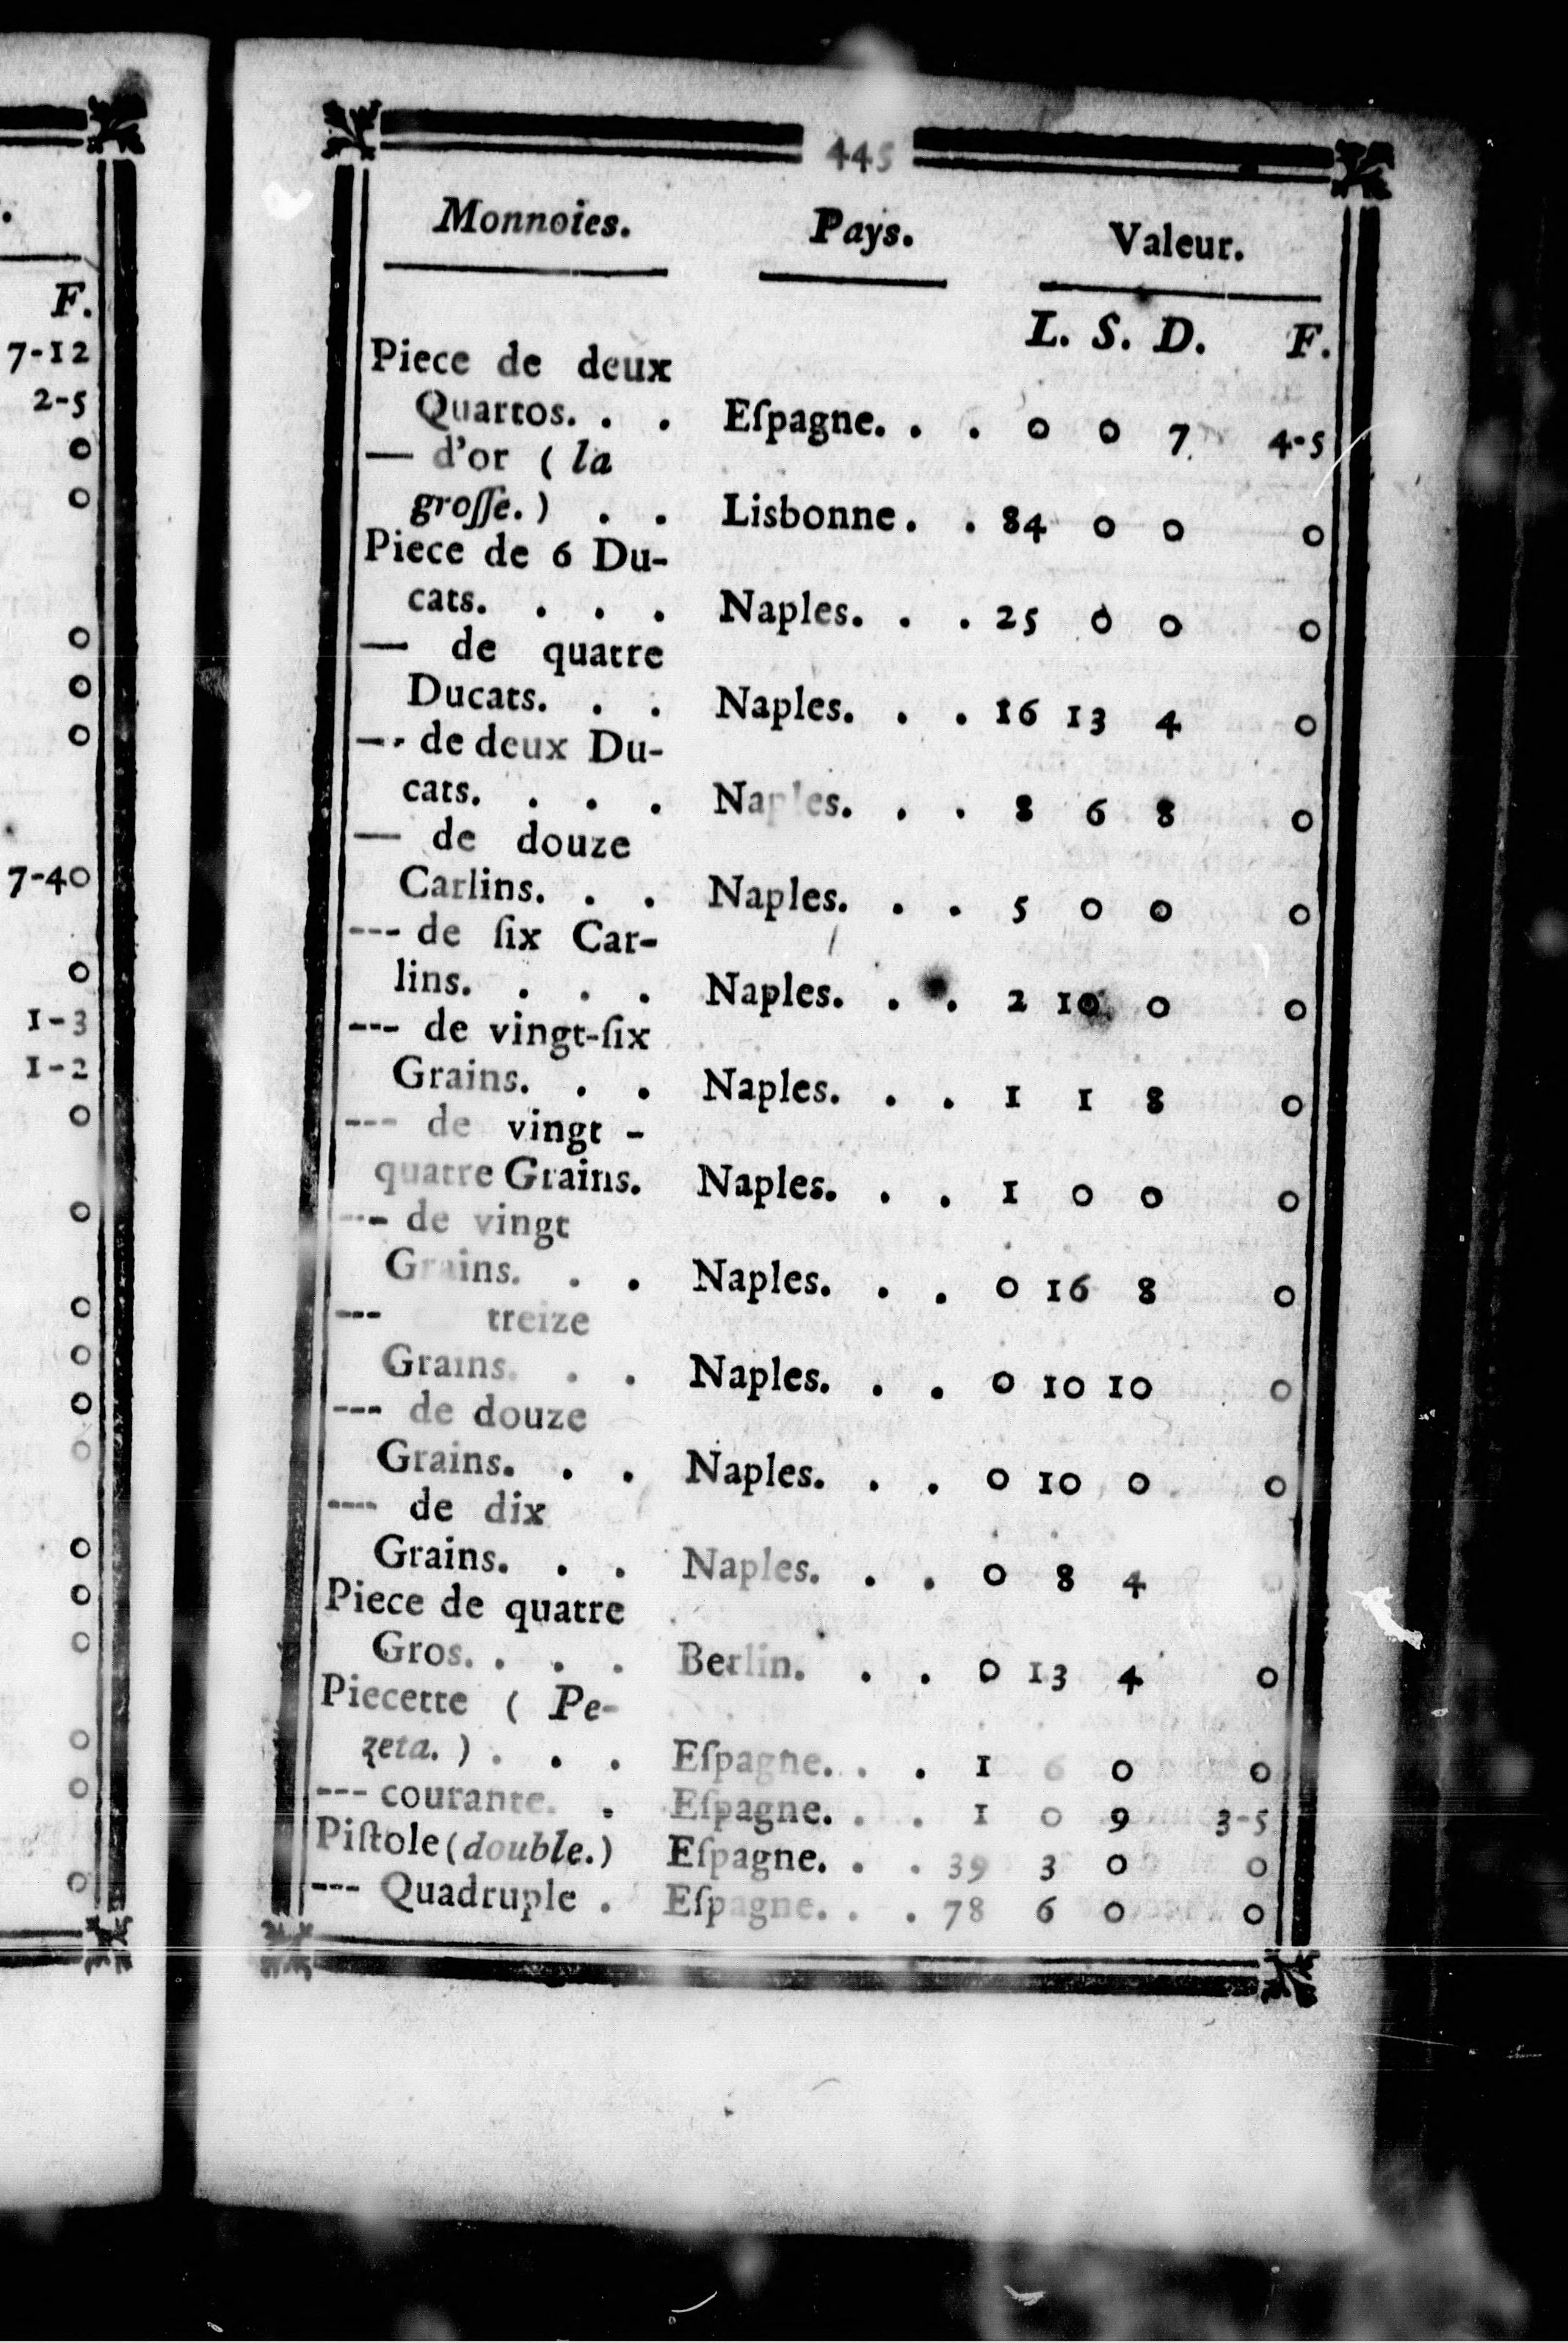 F.
7-12
2-5
0
0
0
0
0
7-40
0
1-3
1-2
0
0
0
0
0
0
0
0
0
0
0
0
445
Monnoies. Pays. Valeur.
L. S. D. F.
Piece de deux
Quartos. . . Eſpagne. . . 0 0 7 4-5
— d'or ( la
groſſe. ) . . Lisbonne. . 84 0 0 0
Piece de 6 Du-
cats. . . . Naples. . . 25 0 0 0
— de quatre
Ducats. . . Naples. . . 16 13 4 0
— de deux Du-
cats. . . . Naples. . . 8 6 8 0
— de douze
Carlins. . . Naples. . . 5 0 0 0
--- de ſix Car-
lins. . . . Naples. . . 2 10 0 0
--- de vingt-ſix
Grains. . . Naples. . . 1 1 8 0
--- de vingt -
quatre Grains. Naples. . . 1 0 0 0
--- de vingt
Grains. . . Naples. . . 0 16 8 0
--- treize
Grains. . . Naples. . . 0 10 10 0
--- de douze
Grains. . . Naples. . . 0 10 0 0
--- de dix
Grains. . . Naples. . . 0 8 4
Piece de quatre
Gros. . . . Berlin. . . 0 13 4 0
Piecette ( Pe-
zeta. ) . . . Eſpagne. . . 1 6 0 0
--- courante. . Eſpagne. . . 1 0 9 3-5
Piſtole (double.) Eſpagne. . . 39 3 0 0
--- Quadruple . Eſpagne. . . 78 6 0 0